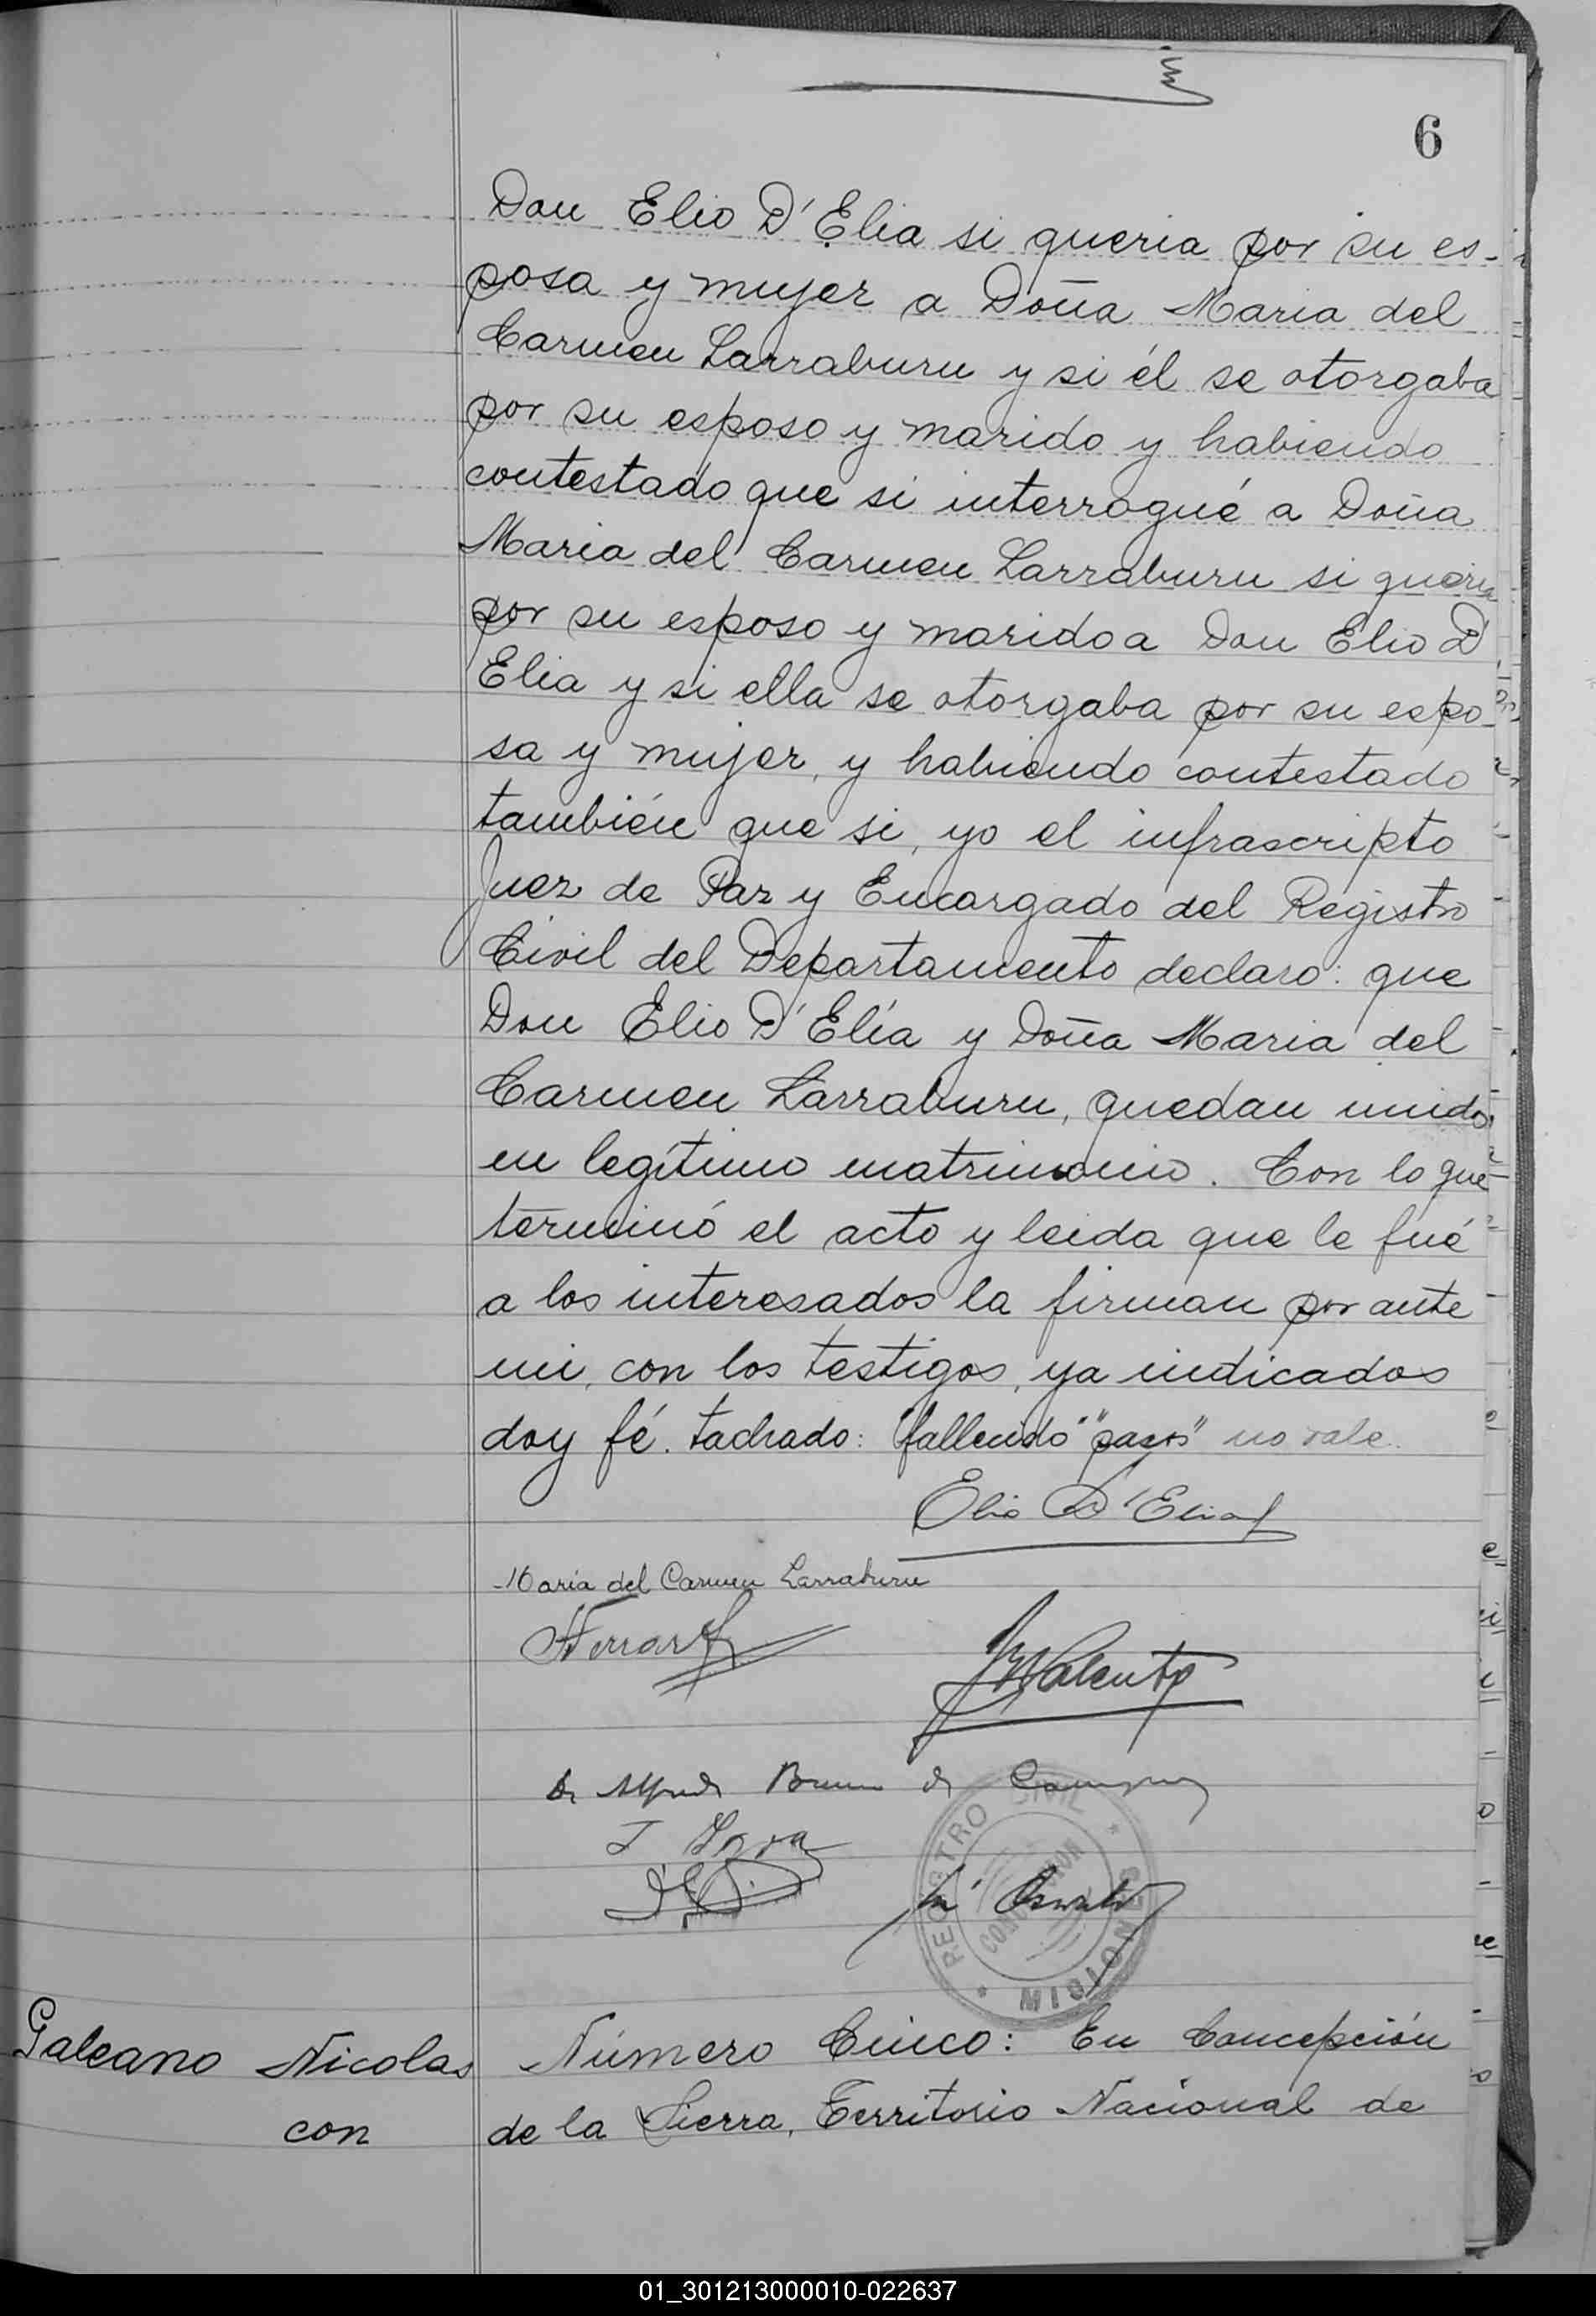 6
Don Elio D'Elia si queria por su es-
posa y mujer a Doña Maria del
Carmen Larraburu y si él se otorgaba
por su esposo y marido y habiendo
contestado que si interrogué a Doña
Maria del Carmen Larraburu si queria
por su esposo y marido a Don Elio D'
Elia y si ella se otorgaba por su espo
sa y mujer, y habiendo contestado
también que si, yo el infrascripto
Juez de Paz y Encargado del Registro
Civil del Departamento declaro: que
Don Elio D'Elía y Doña Maria del
Carmen Larraburu, quedan unidos
en legítimo matrimonio. Con lo que
terminó el acto y leida que le fué
a los interesados la firman por ante
mi, con los testigos, ya indicados
doy fé. tachado: "fallecido" "pasos" no vale.
Elio D'Elia
Maria del Carmen Larraburu
Valenti
Dr Alfredo Bruno de
REGISTRO CIVIL
CONCEPCION
MISIONES
Galeano Nicolas
con
Número Cinco: En Concepción
de la Sierra, Territorio Nacional de
01_301213000010-022637